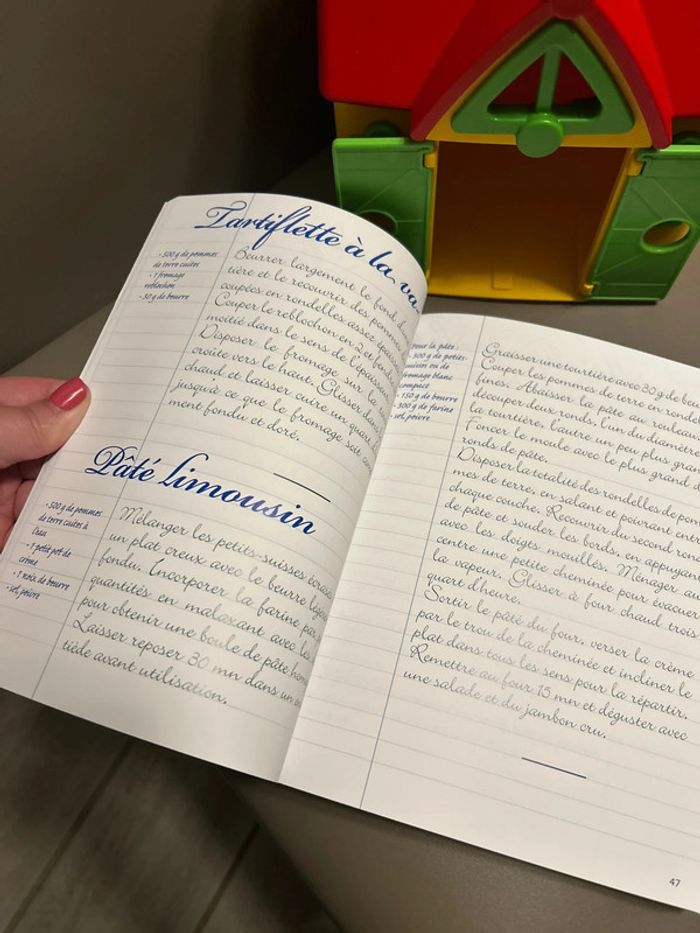 Tartiflette à la va
• 500 g de pommes
de terre cuites
• 1 fromage
reblochon
• 50 g de beurre
Beurrer largement le fond d'u
tière et le recouvrir des pomme
coupées en rondelles assez épaiss
Couper le reblochon en 2 et fend
moitié dans le sens de l'épaisseur
Disposer le fromage sur la
croûte vers le haut. Glisser dans
chaud et laisser cuire un quart
jusqu'à ce que le fromage soit
ment fondu et doré.
Pâté limousin
• 500 g de pommes
de terre cuites à
l'eau
• 1 petit pot de
crème
• 1 noix de beurre
• sel, poivre
Mélanger les petits-suisses écrasés
un plat creux avec le beurre légè
fondu. Incorporer la farine par
quantités en malaxant avec les
pour obtenir une boule de pâte hom
Laisser reposer 30 mn dans un
tiède avant utilisation.
Pour la pâte :
• 300 g de petits-
suisses ou de
fromage blanc
compact
• 150 g de beurre
• 300 g de farine
• sel, poivre
Graisser une tourtière avec 30 g de beur
Couper les pommes de terre en rondel
fines. Abaisser la pâte au rouleau
découper deux ronds, l'un du diamètre
la tourtière, l'autre un peu plus gran
Foncer le moule avec le plus grand d
ronds de pâte.
Disposer la totalité des rondelles de pom
mes de terre, en salant et poivrant entr
chaque couche. Recouvrir du second ron
de pâte et souder les bords, en appuyan
avec les doigts mouillés. Ménager au
centre une petite cheminée pour évacuer
la vapeur. Glisser à four chaud trois
quart d'heure.
Sortir le pâté du four, verser la crème
par le trou de la cheminée et incliner le
plat dans tous les sens pour la répartir.
Remettre au four 15 mn et déguster avec
une salade et du jambon cru.
47